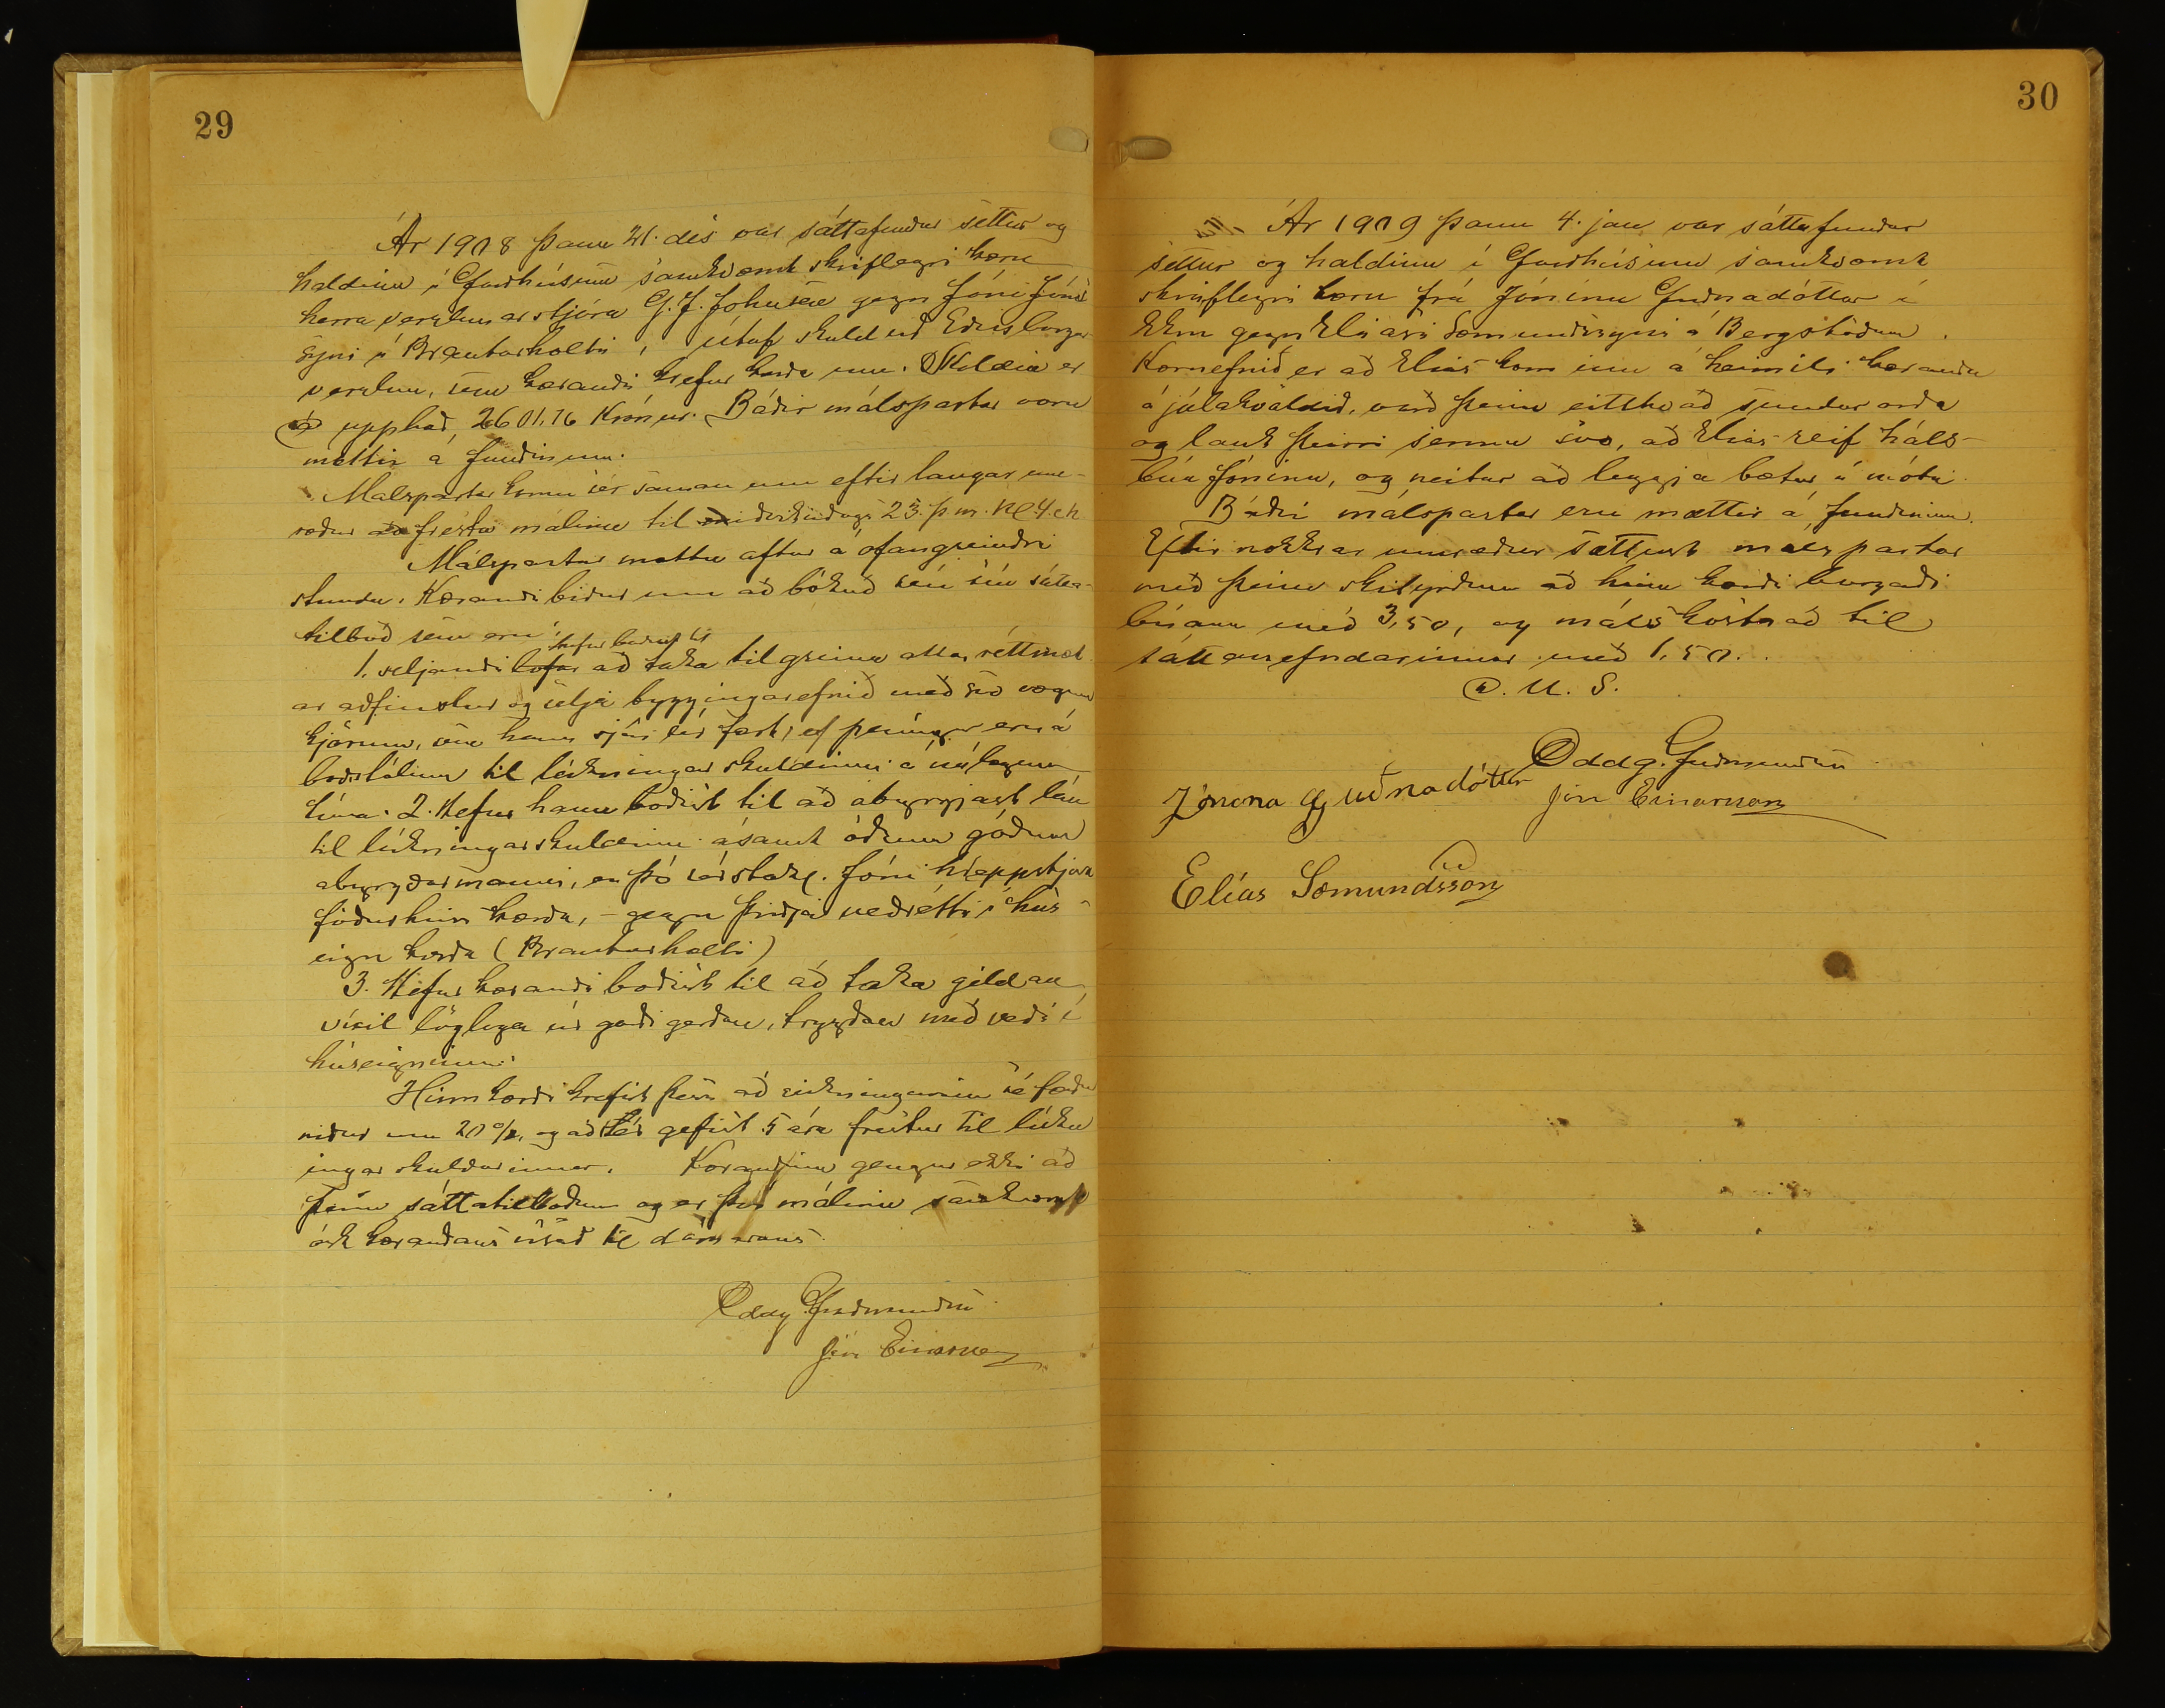 29
Ár 1908 þann 21. des var sáttafundur settur og
haldinn í Goodhúsinu samkvæmt skriflegri kæru
herra verzlunarstjóra G. J. Johnsen gegn Jóni Jóns
syni í Brautarholti, útaf skuld við Edinborgar
verzlun, sem kærandi krefur kærða um. Skuldin er
að upphæð, 2601,76 Krónur. Báðir málspartar voru
mættir á fundinum.
Málspartar komu sér saman um eftir langar um-
ræður að fresta málinu til miðvikudags 23. þ.m. Kl 4 eh
Málspartar mættu aftur á ofangreindri
stundu. Kærandi biður um að bókuð séu sín sátta-
tilboð sem eru:
hefur boðist til
1. seljandi lofar að taka til greina allar réttmæt
ar aðfinslur og selja byggingarefnið með svo vægum
kjörum, sem hann sjái sér fært, ef peningar eru á
boðstólum til lúkningar skuldinni á núlegum
tíma. 2. Hefur hann boðist til að abyrgjast lán
til lúkningar skuldinni ásamt öðrum góðum
abyrgðarmanni, en þó sérstakl. Jóni hreppstjóra
föður hins kærða, - gegn þriðja veðrétti í hús-
eign kærða (Brautarholti)
3. Hefur kærandi boðist til að taka gildan
víxil löglega úr garði gerðan, trygðan með veði í
húseigninni.
Hinn kærði krefst þess að reikningurinn sé færður
niður um 20%, og að sér gefist 5 ára frestur til lúkn
ingar skuldarinnar. Kærandinn gengur ekki að
þeim sáttatilboðum og er því málinu samkvæmt
ósk kærandans vísað til dómarans.
Oddg. Guðmundsen
Jón Einarsson
30
Ár 1909 þann 4. jan var sáttafundur
settur og haldinn í Goodhúsinu samkvæmt
skriflegri kæru frá Jónínu Guðnadóttur í
gegn Elíasi Sæmundssyni á Bergstöðum.
Kæruefnið er að Elías kom inn á heimili kæranda
á jólakvöldið, varð þeim eitthvað sundurorða
og lauk þeirri sennu svo, að Elías reif háls-
búa Jónínu, og neitar að leggja bætur á móti.
Báðir málspartar eru mættir á fundinum.
Eftir nokkrar umræður sættust málspartar
með þeim skilyrðum að hinn kærði borgaði
búann með 3,50, og málskostnað til
sáttanefndarinnar með 1,50.
D. U. S.
Oddg. Guðmundsen
Jónína Guðnadóttir Jón Einarsson
Elías Sæmundsson